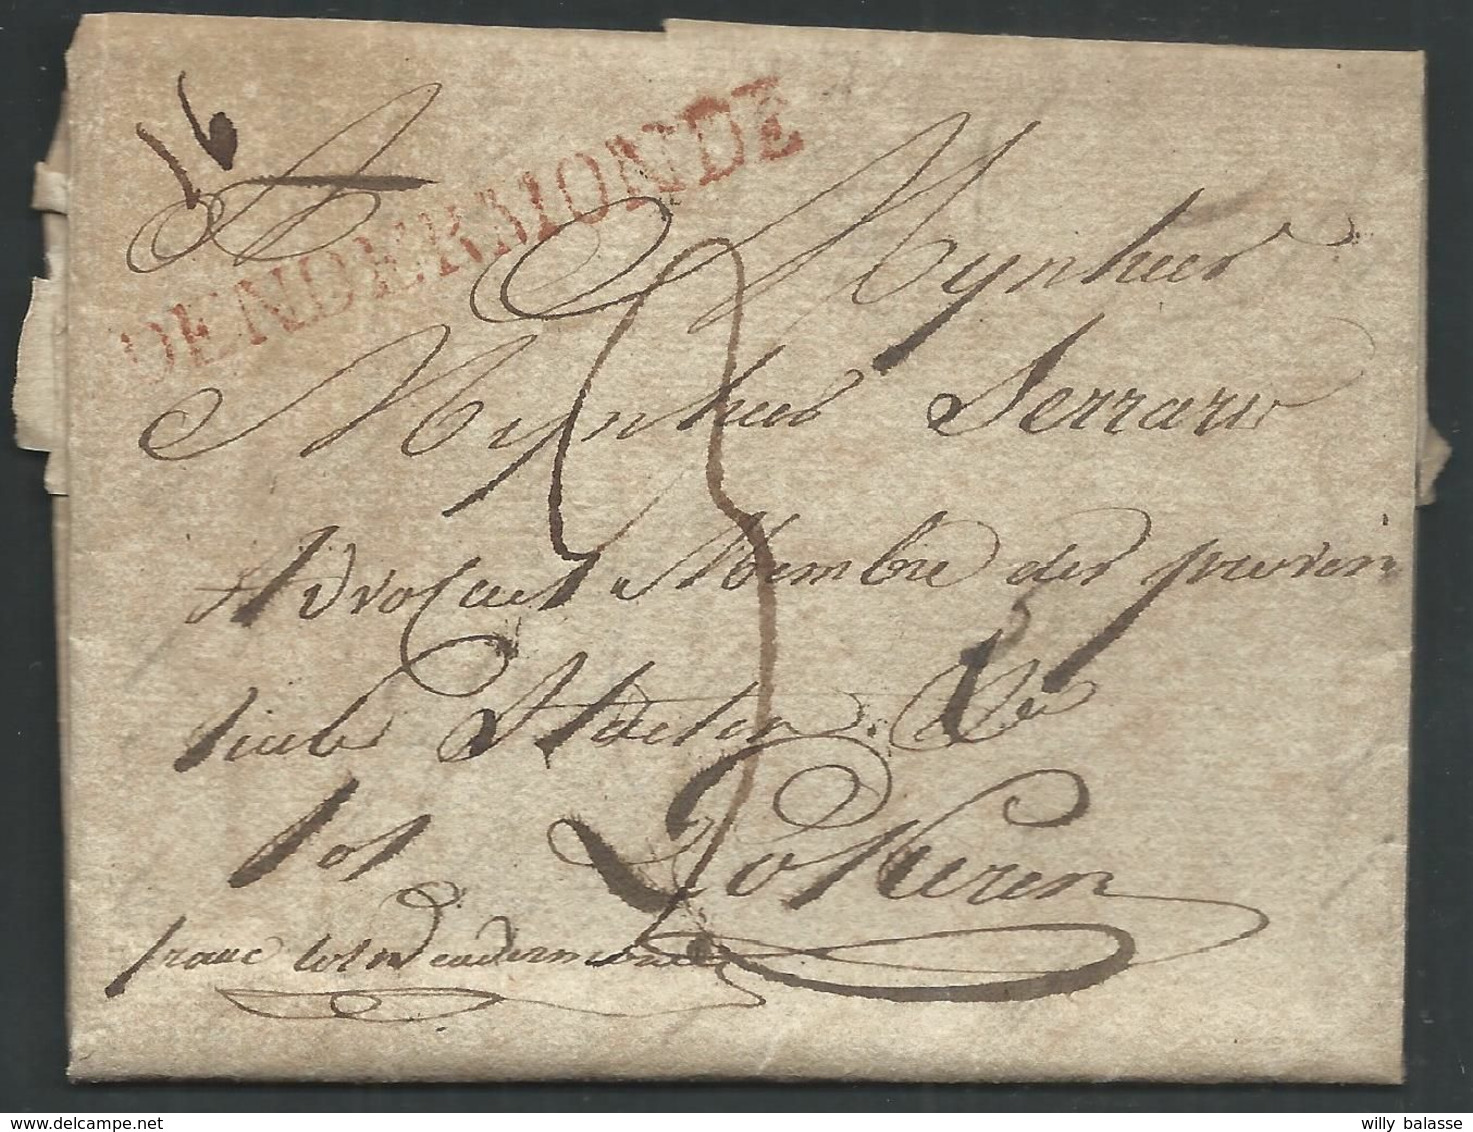 16
DENDERMONDE
A
Mynheer
Mynheer Serraris
Advocaet Membre der provin
ciale Staeten &c
3
tot Lokeren
franc tot in Dendermonde
willy balasse